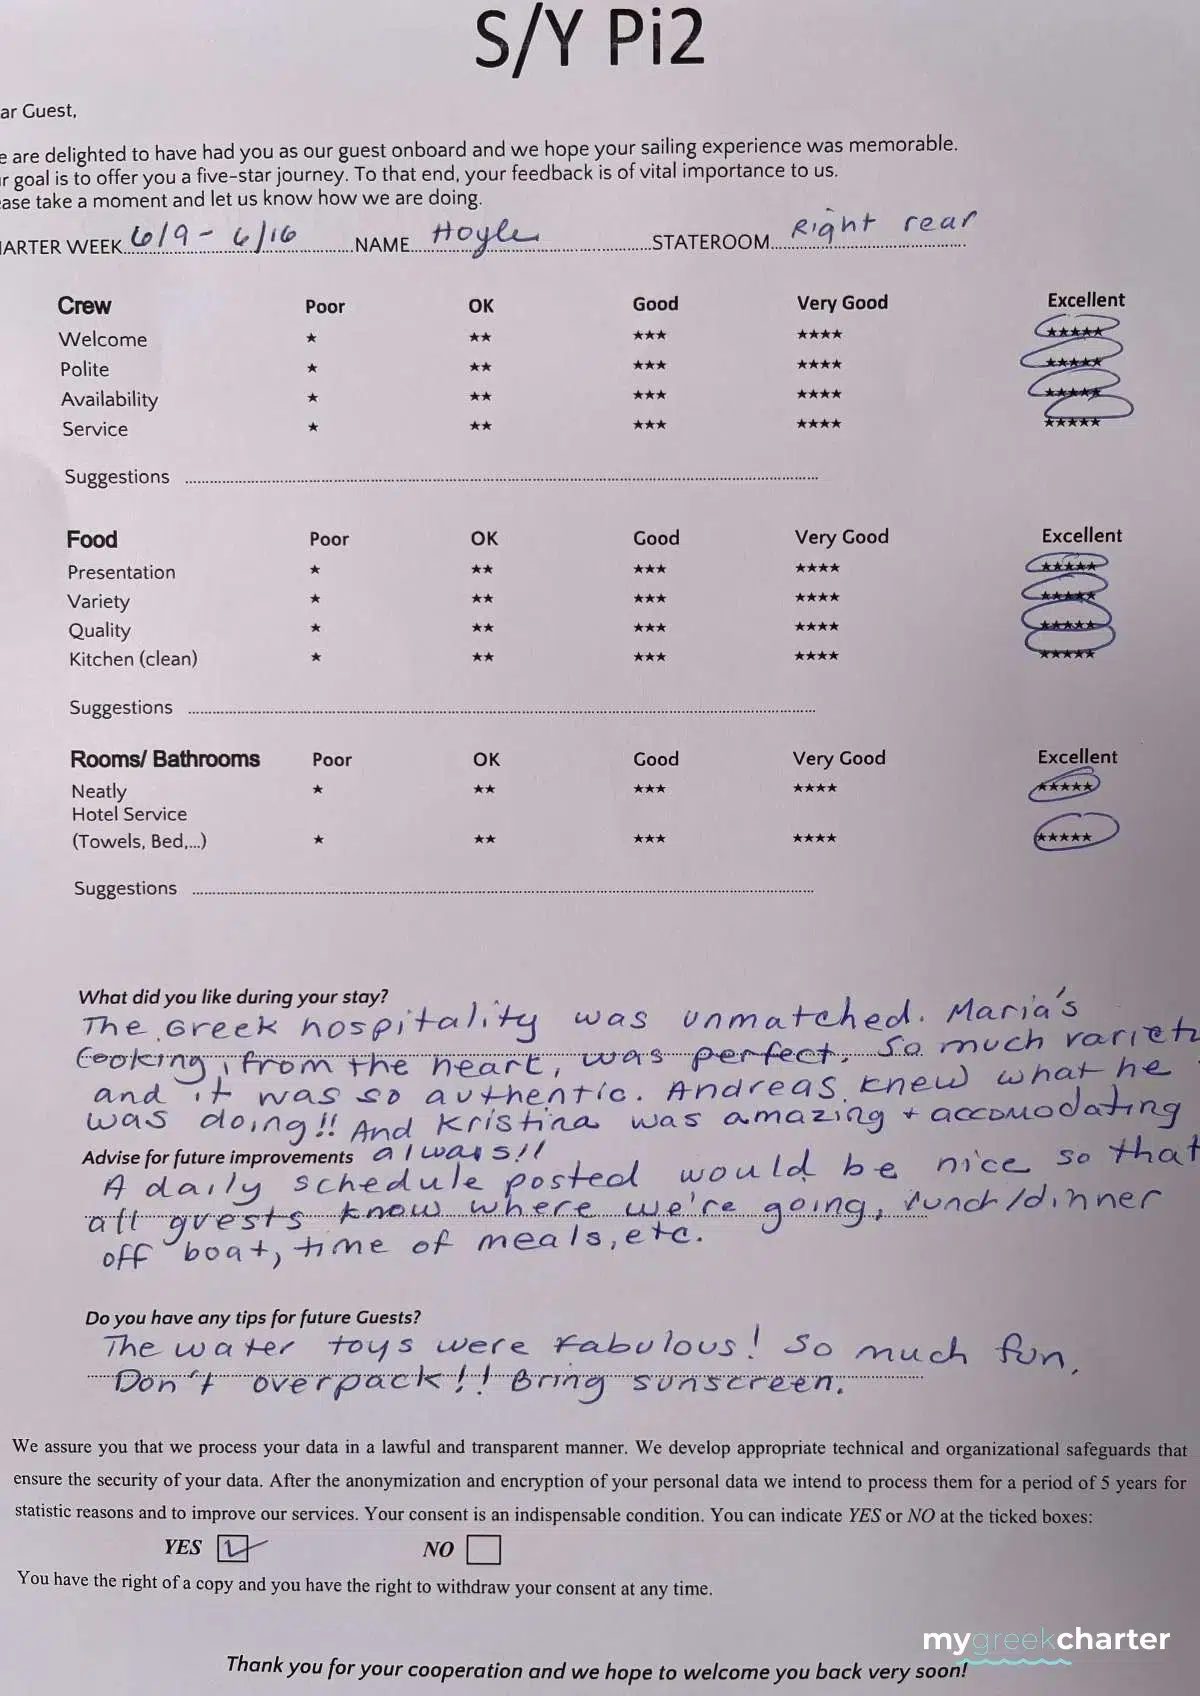 S/Y Pi2
ar Guest,
e are delighted to have had you as our guest onboard and we hope your sailing experience was memorable.
r goal is to offer you a five-star journey. To that end, your feedback is of vital importance to us.
ase take a moment and let us know how we are doing.
HARTER WEEK 6/9 - 6/16 NAME Hoyle STATEROOM Right rear
Crew Poor OK Good Very Good Excellent
Welcome ★ ★★ ★★★ ★★★★ ★★★★★
Polite ★ ★★ ★★★ ★★★★ ★★★★★
Availability ★ ★★ ★★★ ★★★★ ★★★★★
Service ★ ★★ ★★★ ★★★★ ★★★★★
Suggestions
Food Poor OK Good Very Good Excellent
Presentation ★ ★★ ★★★ ★★★★ ★★★★★
Variety ★ ★★ ★★★ ★★★★ ★★★★★
Quality ★ ★★ ★★★ ★★★★ ★★★★★
Kitchen (clean) ★ ★★ ★★★ ★★★★ ★★★★★
Suggestions
Rooms/ Bathrooms Poor OK Good Very Good Excellent
Neatly ★ ★★ ★★★ ★★★★ ★★★★★
Hotel Service
(Towels, Bed,...) ★ ★★ ★★★ ★★★★ ★★★★★
Suggestions
What did you like during your stay?
The Greek hospitality was unmatched. Maria's
Cooking, from the heart, was perfect. So much variety
and it was so authentic. Andreas knew what he
was doing!! And Kristina was amazing + accomodating
always!!
Advise for future improvements
A daily schedule posted would be nice so that
all guests know where we're going, lunch/dinner
off boat, time of meals, etc.
Do you have any tips for future Guests?
The water toys were fabulous! So much fun.
Don't overpack!! Bring sunscreen.
We assure you that we process your data in a lawful and transparent manner. We develop appropriate technical and organizational safeguards that
ensure the security of your data. After the anonymization and encryption of your personal data we intend to process them for a period of 5 years for
statistic reasons and to improve our services. Your consent is an indispensable condition. You can indicate YES or NO at the ticked boxes:
YES NO
You have the right of a copy and you have the right to withdraw your consent at any time.
mygreekcharter
Thank you for your cooperation and we hope to welcome you back very soon!